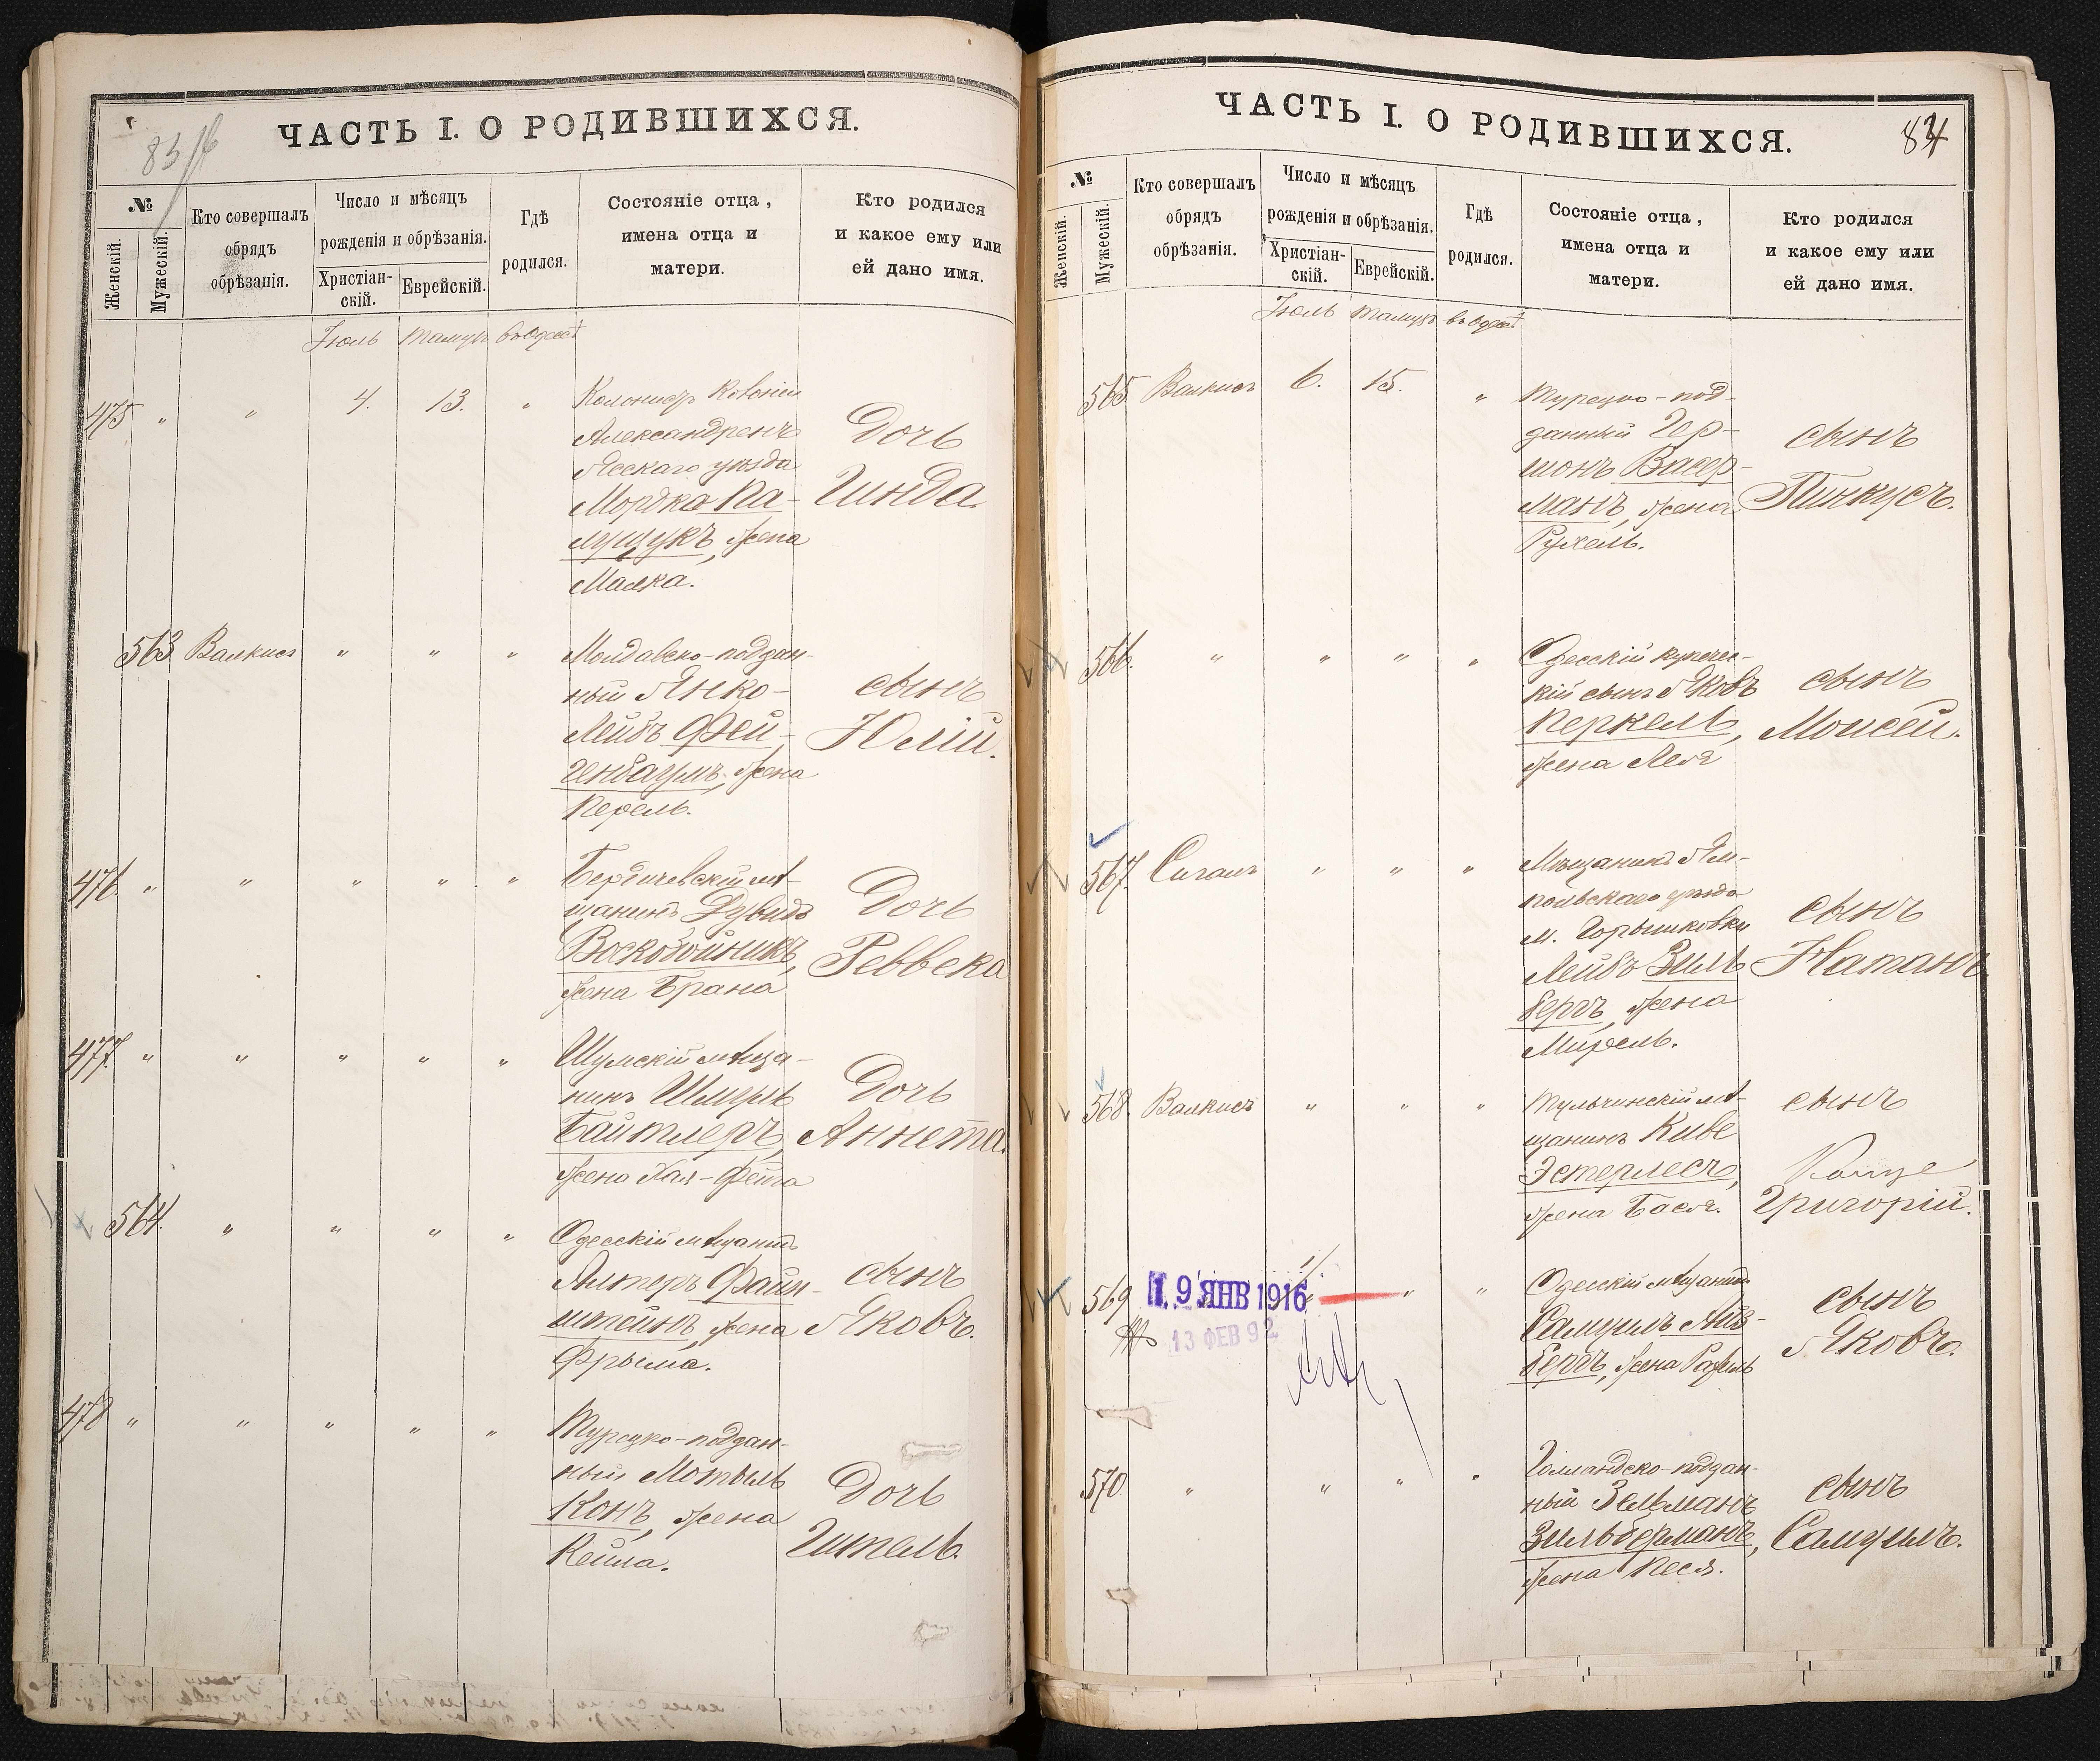 83
ЧАСТЬ I. О РОДИВШИХСЯ.
№
Женскій.
Мужескій.
Кто совершалъ
обрядъ
обрѣзанія.
Число и мѣсяцъ
рожденія и обрѣзанія.
Христіан-
скій.
Еврейскій.
Гдѣ
родился.
Состояніе отца,
имена отца и
матери.
Кто родился
и какое ему или
ей дано имя.
Іюль Тамузъ въ Одессѣ
475 " " 4. 13. "
Колонистъ Колоніи
Александренъ
Ясскаго уѣзда
Мордко Па-
лущукъ, жена
Малка.
Дочь
Гинда
563 Валкисъ " " "
Молдавско-поддан-
ный Янко-
Лейбъ Фей-
генбаумъ, жена
Перель.
сынъ
Юлій.
476 " " " " "
Бердичевскій мѣ-
щанинъ Дувидъ
Воскобойникъ,
жена Брана
Дочь
Реввека
477. " " " " "
Шумскій мѣща-
нинъ Шмуль
Байтлеръ,
жена Хая-Фейга
Дочь
Аннета.
564. " " " "
Одесскій мѣщанинъ
Алтеръ Файн-
штейнъ, жена
Фрыма.
сынъ
Яковъ.
478 " " " " "
Турецко-поддан-
ный Мотыль
Конъ, жена
Кейла.
Дочь
Гитель.
84
ЧАСТЬ I. О РОДИВШИХСЯ.
№
Женскій.
Мужескій.
Кто совершалъ
обрядъ
обрѣзанія.
Число и мѣсяцъ
рожденія и обрѣзанія.
Христіан-
скій.
Еврейскій.
Гдѣ
родился.
Состояніе отца,
имена отца и
матери.
Кто родился
и какое ему или
ей дано имя.
Іюль Тамузъ въ Одессѣ
565. Валкисъ 6. 15. "
Турецко-под-
данный Гер-
шонъ Васер-
манъ, жена
Рухель.
сынъ
Пинкусъ.
566. " " " "
Одесскій купечес-
кій сынъ Яковъ
Перкель,
жена Лея
сынъ
Моисей.
567. Сигалъ " " "
Мѣщанинъ Ям-
польскаго уѣзда
м. Горышковки
Лейбъ Зиль
бергъ, жена
Мирель.
сынъ
Натанъ.
568. Валкисъ " " "
Тульчинскій мѣ-
щанинъ Киве
Эстерлесъ,
жена Бася.
сынъ
Григорій.
569 " "
П. 9 ЯНВ 1916
13 ФЕВ 92
Одесскій мѣщанинъ
Самуилъ Айз-
бергъ, жена Рахель
сынъ
Яковъ.
570. " " " "
Голландско-поддан-
ный Зельманъ
Зильберманъ,
жена Песя.
сынъ
Самуилъ.